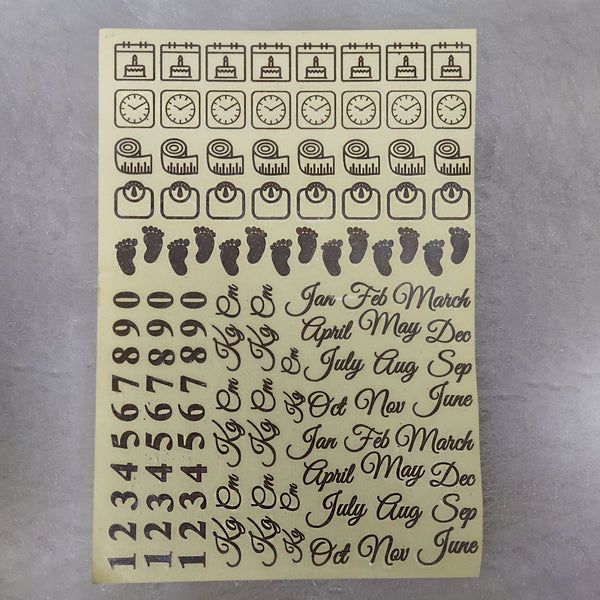 1234567890
1234567890
1234567890
Kg Cm Kg Cm Kg Cm
Kg Cm Kg Cm Kg Cm
Kg Cm Kg Cm
Jan Feb March
April May Dec
July Aug Sep
Oct Nov June
Jan Feb March
April May Dec
July Aug Sep
Oct Nov June